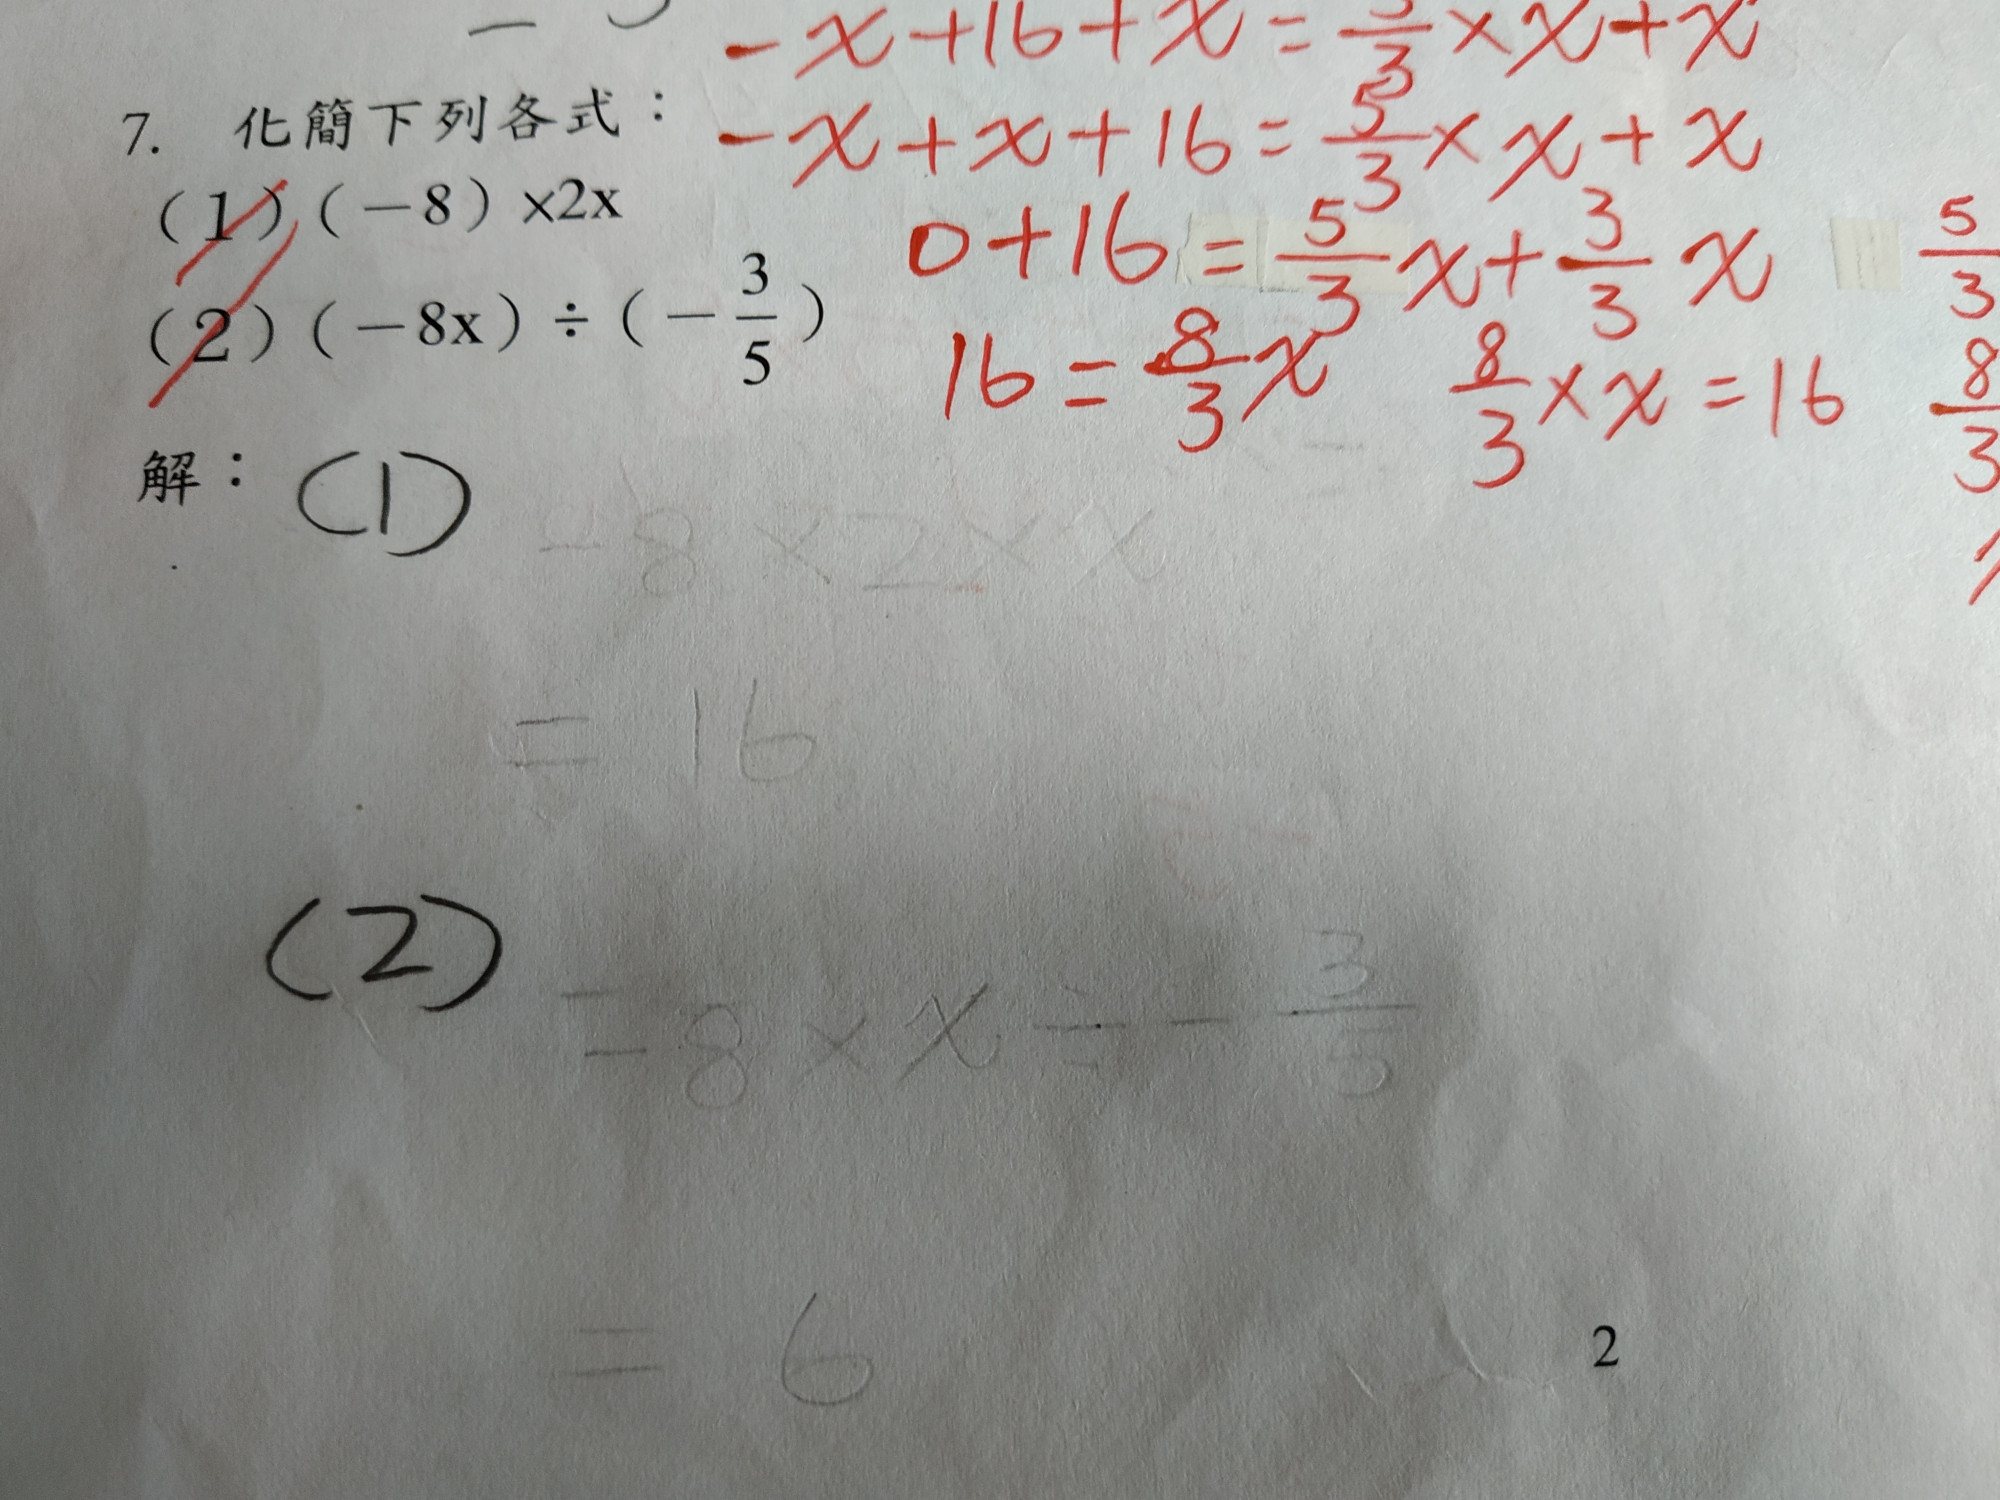 -x+16+x=5/3×x+x
7. 化簡下列各式：
-x+x+16=5/3×x+x
(1)(－8)×2x
0+16=5/3x+3/3x
5/3
(2)(－8x)÷(－3/5)
16=8/3x
8/3×x=16
8/3
解：(1)
-8×2×x
=16
(2)
=-8×x÷-3/5
=6
2